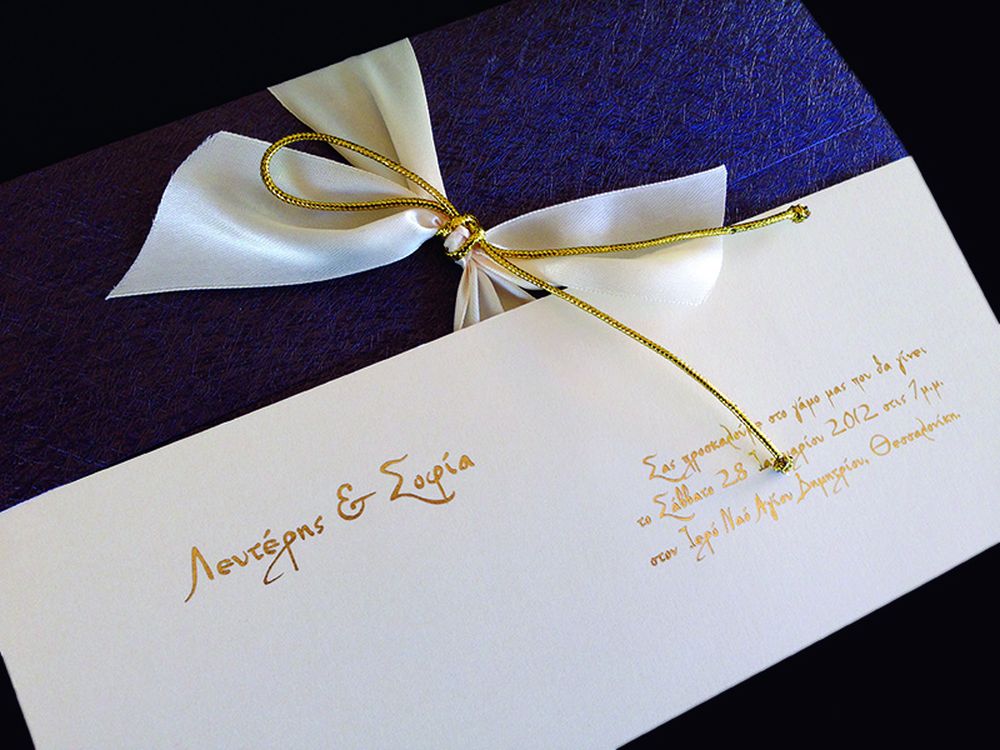 Λευτέρης & Σοφία
Σας προσκαλούμε στο γάμο μας που θα γίνει
το Σάββατο 28 Ιανουαρίου 2012 στις 1 μ.μ.
στον Ιερό Ναό Αγίου Δημητρίου, Θεσσαλονίκη.